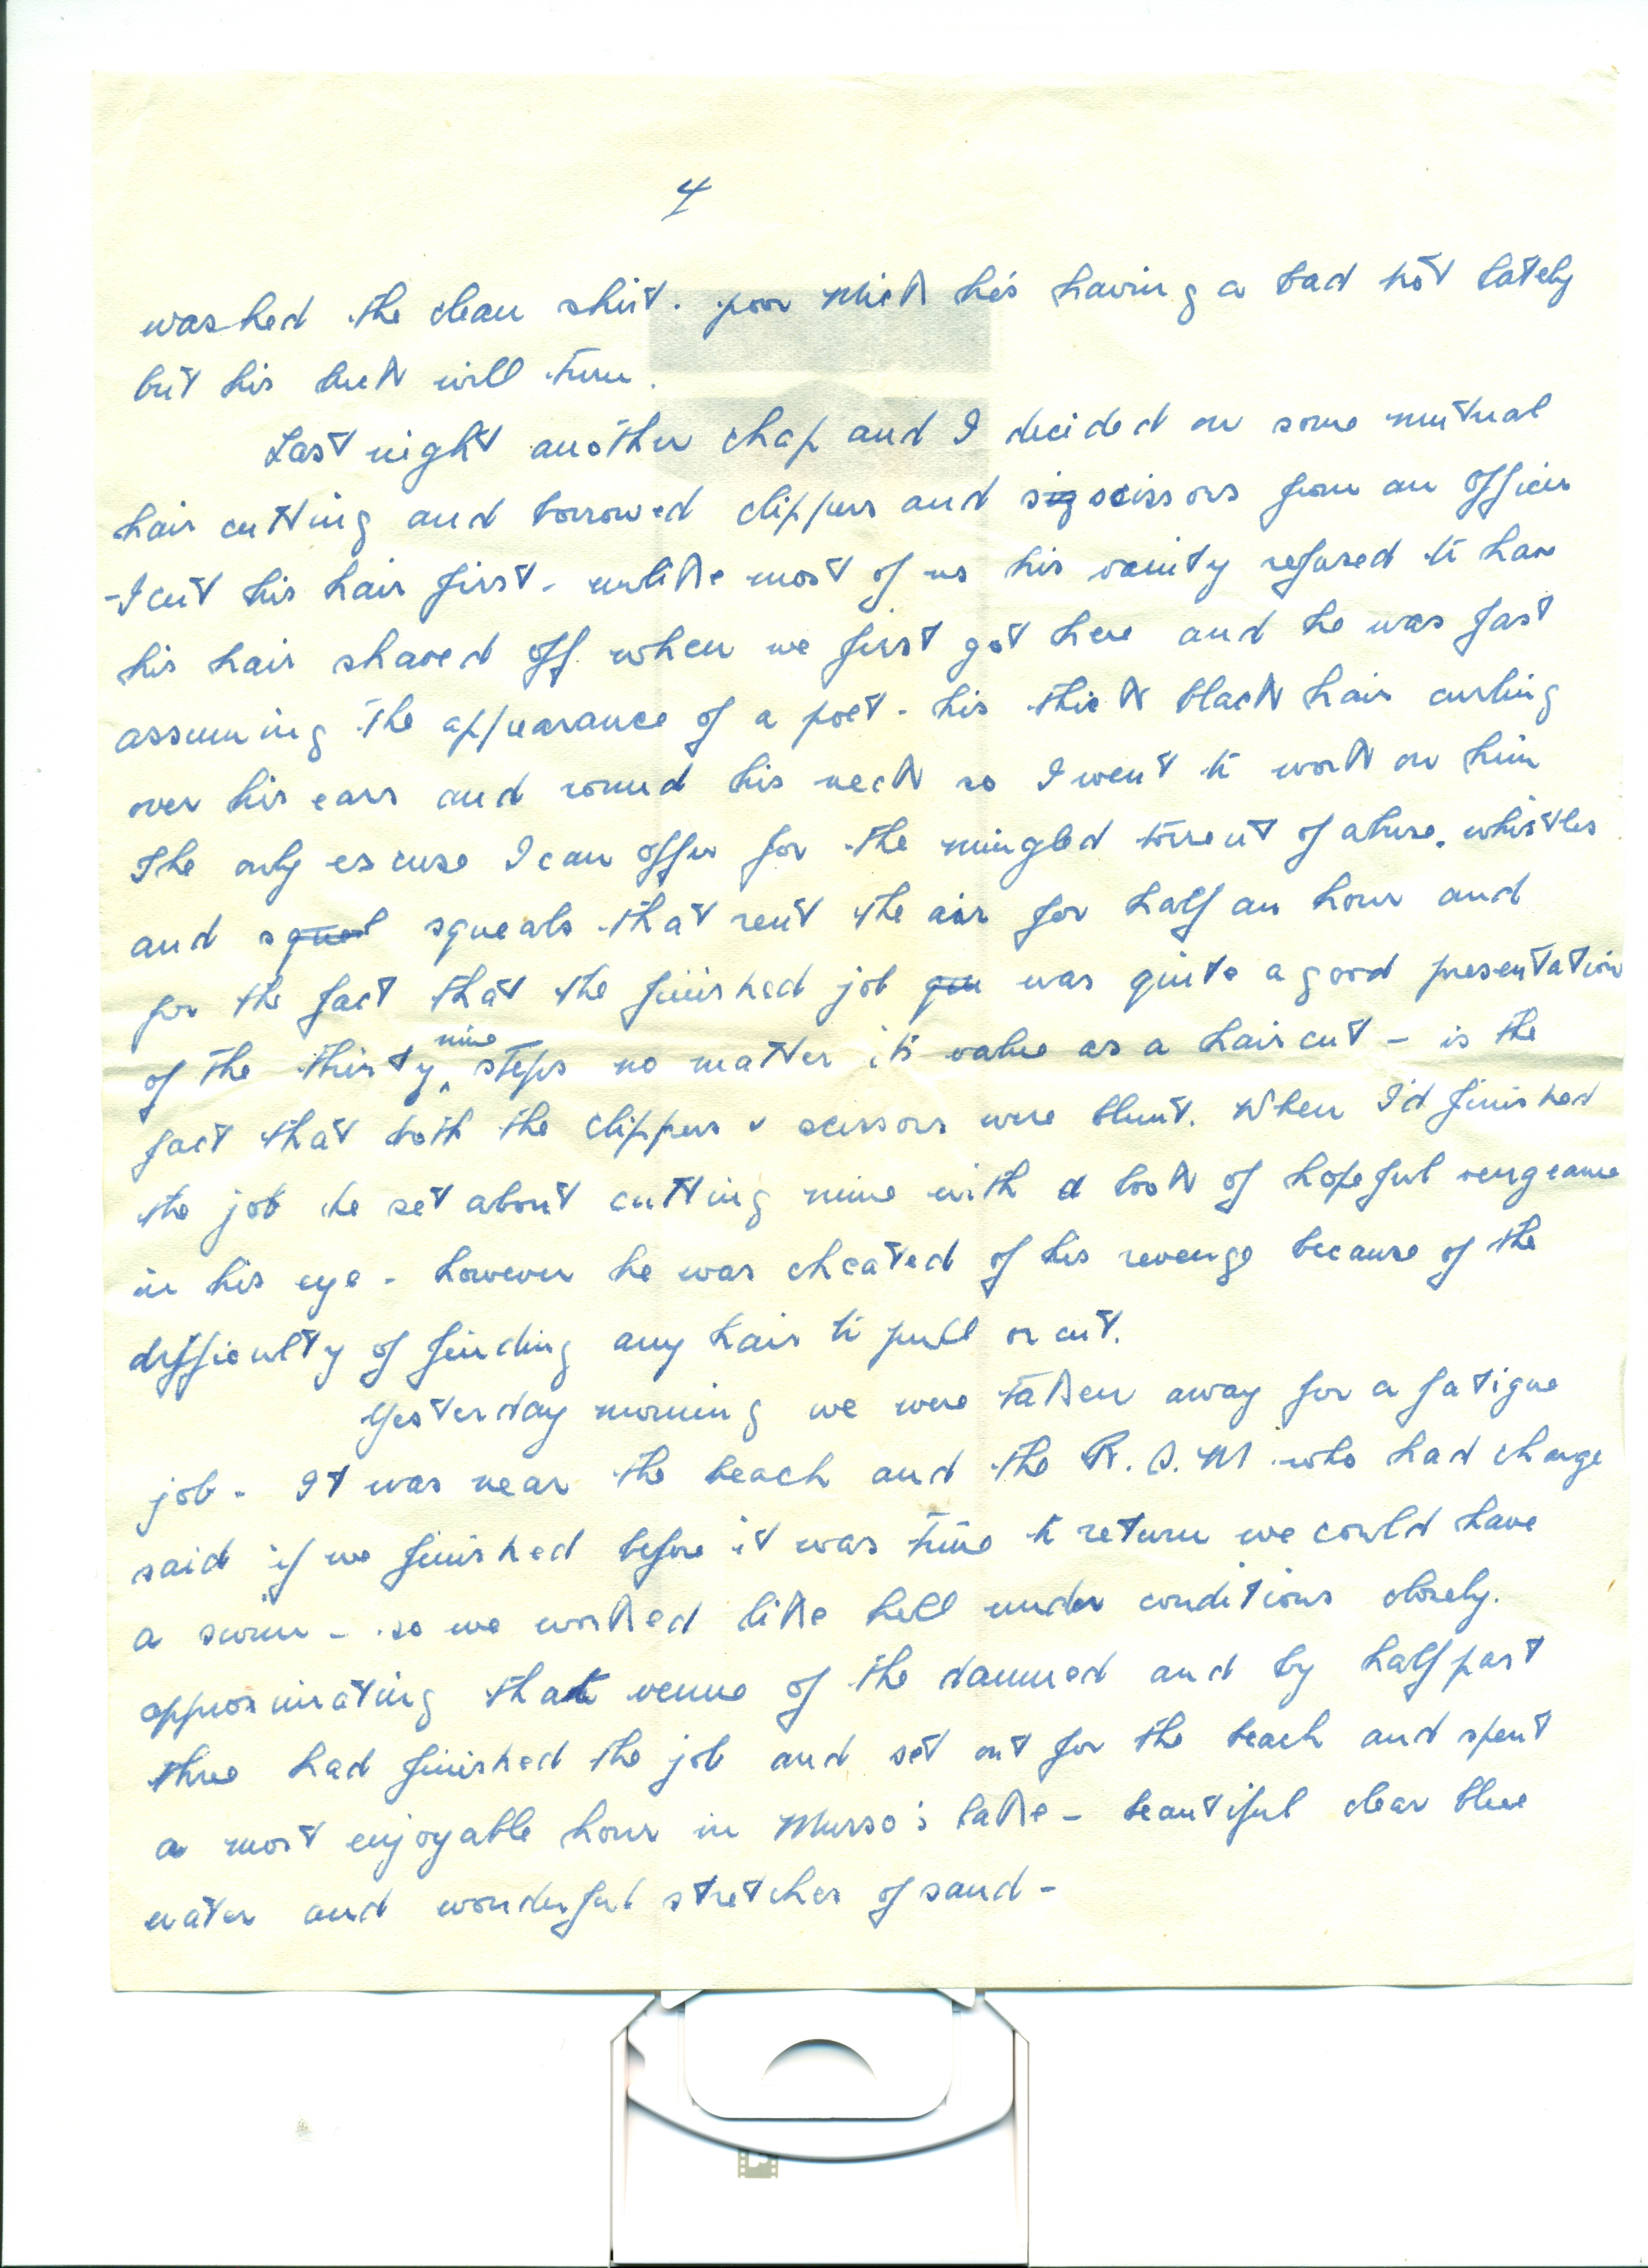 4
washed the clean shirt. poor Mick he's having a bad trot lately
but his luck will turn.
Last night another chap and I decided on some mutual
hair cutting and borrowed clippers and sig scissors from an officer
- I cut his hair first - unlike most of us his vanity refused to have
his hair shaved off when we first got here and he was fast
assuming the appearance of a poet - his thick black hair curling
over his ears and round his neck so I went to work on him
The only excuse I can offer for the mingled torrent of abuse, whistles
and squeal squeals that rent the air for half an hour and
for the fact that the finished job qu was quite a good presentation
of the thirty nine steps no matter its value as a haircut - is the
fact that both the clippers & scissors were blunt. When I'd finished
the job he set about cutting mine with a look of hopeful vengeance
in his eye - however he was cheated of his revenge because of the
difficulty of finding any hair to pull or cut.
Yesterday morning we were taken away for a fatigue
job - It was near the beach and the R.S.M. who had charge
said if we finished before it was time to return we could have
a swim - so we worked like hell under conditions closely.
approximating that venue of the damned and by half past
three had finished the job and set out for the beach and spent
a most enjoyable hour in Musso's lake - beautiful clear blue
water and wonderful stretches of sand -